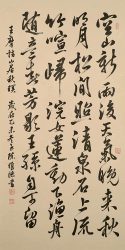 空山新雨後天氣晚來秋
明月松間照清泉石上流
竹喧歸浣女蓮動下漁舟
隨意春芳歇王孫自可留
王摩詰山居秋暝 乙未